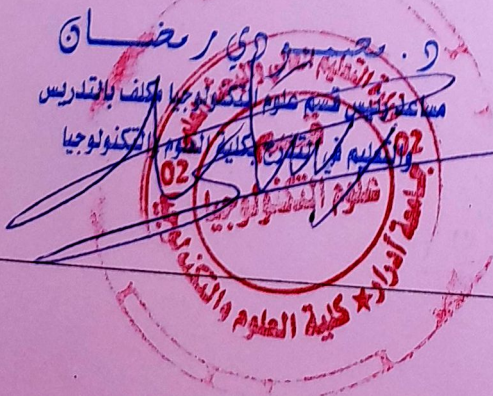 د. معيمودي رمضان
مساعد رئيس قسم علوم التكنولوجيا مكلف بالتدريس
والتعليم في التدرج بكلية العلوم والتكنولوجيا
02
02
علوم التكنولوجيا
جامعة أدرار ★ كلية العلوم والتكنولوجيا